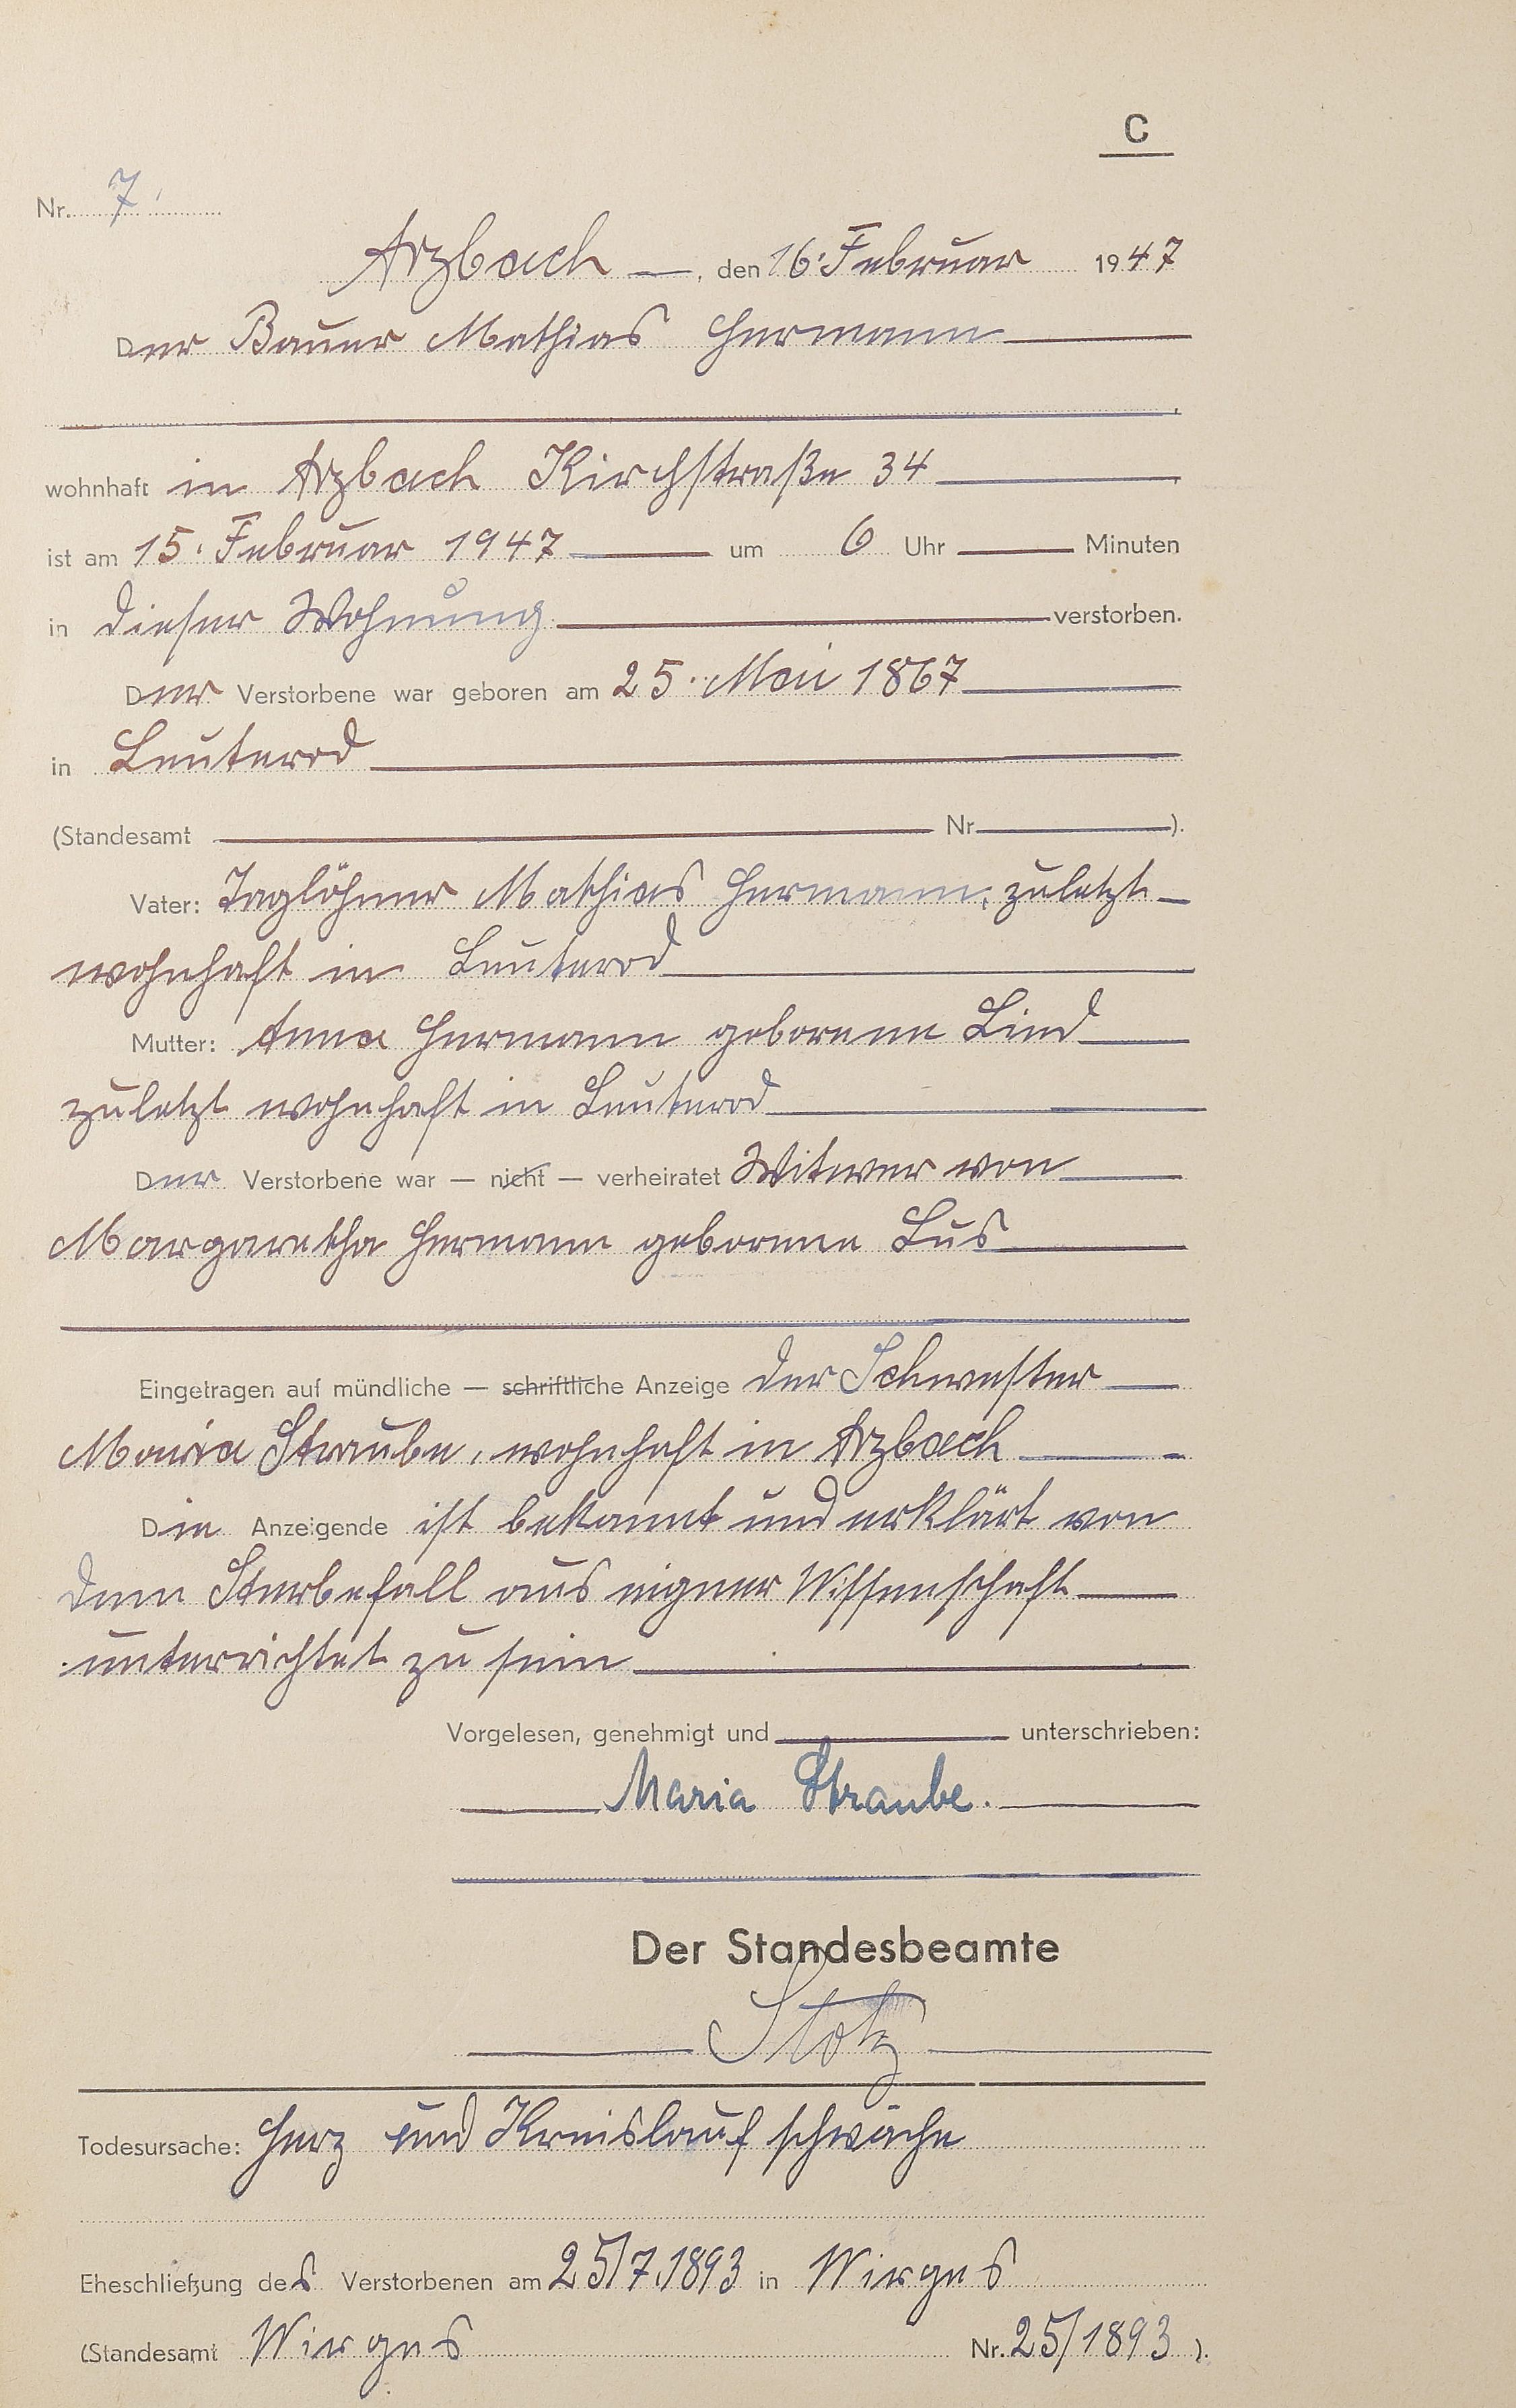 C
Nr. 7
Arzbach —, den 16. Februar 1947
Der Bauer Mathias Hermann
wohnhaft in Arzbach Kirchstraße 34
ist am 15. Februar 1947 um 6 Uhr — Minuten
in dieser Wohnung verstorben.
Der Verstorbene war geboren am 25. Mai 1867
in Leuterod
(Standesamt — Nr. —).
Vater: Taglöhner Mathias Hermann, zuletzt
wohnhaft in Leuterod
Mutter: Anna Hermann geborene Lind
zuletzt wohnhaft in Leuterod
Der Verstorbene war — nicht — verheiratet Witwer von
Margaretha Hermann geborene Lus
Eingetragen auf mündliche — schriftliche Anzeige der Schwester
Maria Straube, wohnhaft in Arzbach
Die Anzeigende ist bekannt und erklärt von
dem Sterbefall aus eigner Wissenschaft
unterrichtet zu sein
Vorgelesen, genehmigt und — unterschrieben:
Maria Straube.
Der Standesbeamte
Stotz
Todesursache: Herz und Kreislauf schwäche
Eheschließung des Verstorbenen am 25/7.1893 in Wirges
(Standesamt Wirges Nr. 25/1893).